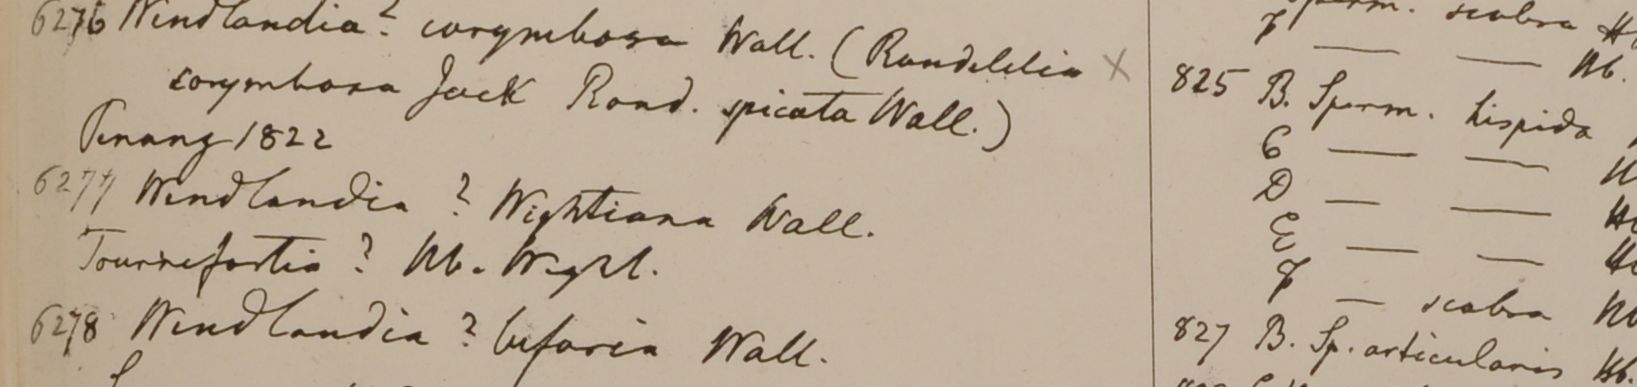 6276 Wendlandia? corymbosa Wall. (Rondeletia ×
corymbosa Jack Rond. spicata Wall.)
Penang 1822
6277 Wendlandia ? Wightiana Wall.
Tournefortia ? Hb. Wight.
6278 Wendlandia ? bifaria Wall.
Sperm. scabra
F — — Hb.
825 B. Sperm. hispida
C — —
D — —
E — —
F — scabra Hb
827 B. Sp. articularis Hb.